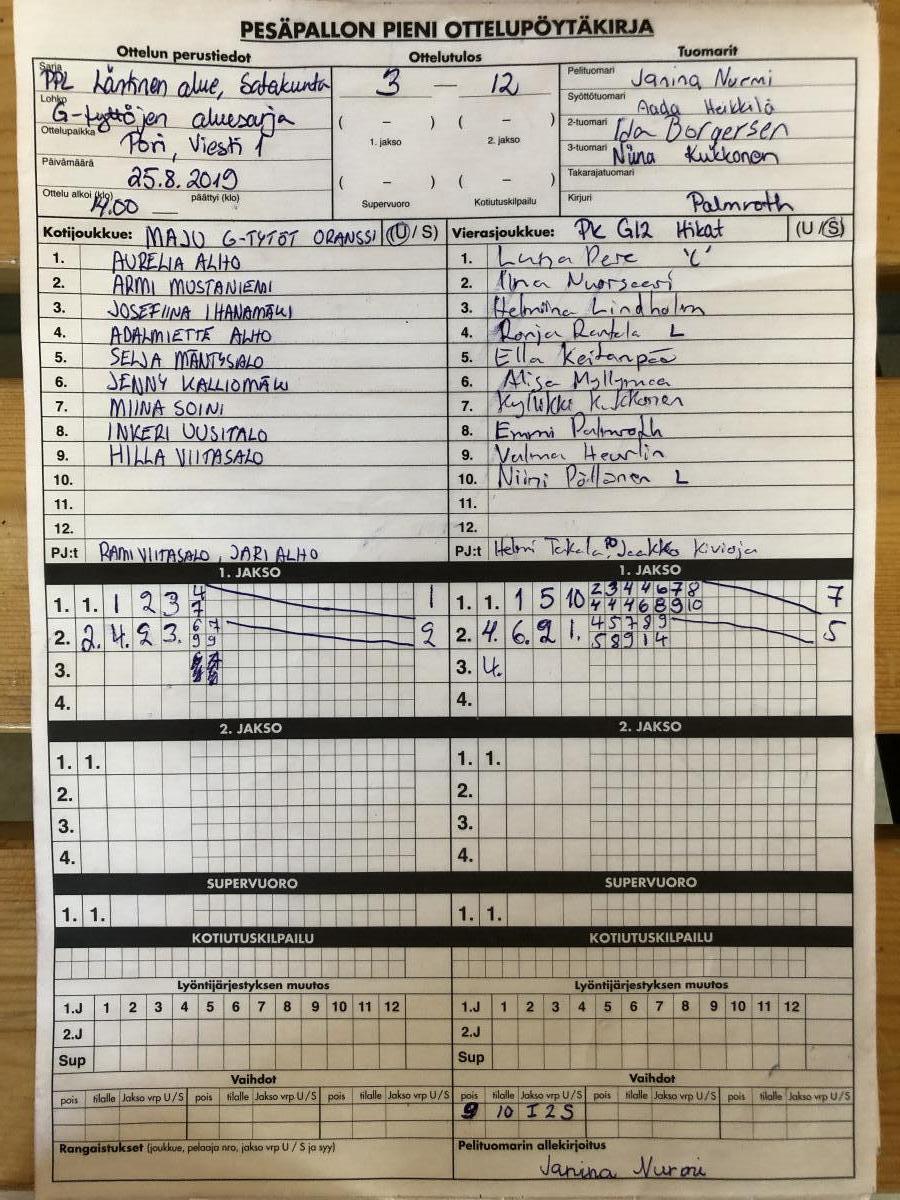 PESÄPALLON PIENI OTTELUPÖYTÄKIRJA
Ottelun perustiedot Ottelutulos Tuomarit
Sarja PPL Läntinen alue, Satakunta
Lohko G-tyttöjen aluesarja
Ottelupaikka Pori, Viesti 1
Päivämäärä 25.8.2019
Ottelu alkoi (klo) 14.00 päättyi (klo)
3 — 12
( – ) ( – )
1. jakso 2. jakso
( – ) ( – )
Supervuoro Kotiutuskilpailu
Pelituomari Janina Nurmi
Syöttötuomari Aada Heikkilä
2-tuomari Ida Borgersen
3-tuomari Niina Kukkonen
Takarajatuomari
Kirjuri Palmroth
Kotijoukkue: MAJU G-TYTÖT ORANSSI (U / S)
1. AURELIA ALHO
2. ARMI MUSTANIEMI
3. JOSEFIINA IHANAMÄKI
4. ADALMIETTE ALHO
5. SELJA MÄNTYSALO
6. JENNY KALLIOMÄKI
7. MIINA SOINI
8. INKERI UUSITALO
9. HILLA VIITASALO
10.
11.
12.
PJ:t RAMI VIITASALO, JARI ALHO
Vierasjoukkue: PK G12 Hikat (U / S)
1. Luna Pere "C"
2. Iina Nuorsaari
3. Helmiina Lindholm
4. Ronja Rantala L
5. Ella Keitanpää
6. Alisa Myllymaa
7. Kyllikki Kukkonen
8. Emmi Palmroth
9. Valma Heurlin
10. Niini Pöllänen L
11.
12.
PJ:t Helmi Takala, Jaakko Kivioja
1. JAKSO
1. 1. 1 2 3 4 1
7
2. 2. 4. 2 3. 6 7 2
9 9
3.
4.
1. JAKSO
1. 1. 1 5 10 2 3 4 4 6 7 8 7
4 4 4 6 8 9 10
2. 4. 6. 2 1. 4 5 7 8 9 5
5 8 9 1 4
3. 4.
4.
2. JAKSO 2. JAKSO
1. 1. 1. 1.
2. 2.
3. 3.
4. 4.
SUPERVUORO SUPERVUORO
1. 1. 1. 1.
KOTIUTUSKILPAILU KOTIUTUSKILPAILU
Lyöntijärjestyksen muutos Lyöntijärjestyksen muutos
1.J 1 2 3 4 5 6 7 8 9 10 11 12 1.J 1 2 3 4 5 6 7 8 9 10 11 12
2.J 2.J
Sup Sup
Vaihdot Vaihdot
pois tilalle Jakso vrp U / S pois tilalle Jakso vrp U / S pois tilalle Jakso vrp U / S pois tilalle Jakso vrp U / S pois tilalle Jakso vrp U / S pois tilalle Jakso vrp U / S
9 10 I 2 S
Rangaistukset (joukkue, pelaaja nro, jakso vrp U / S ja syy) Pelituomarin allekirjoitus
Janina Nurmi